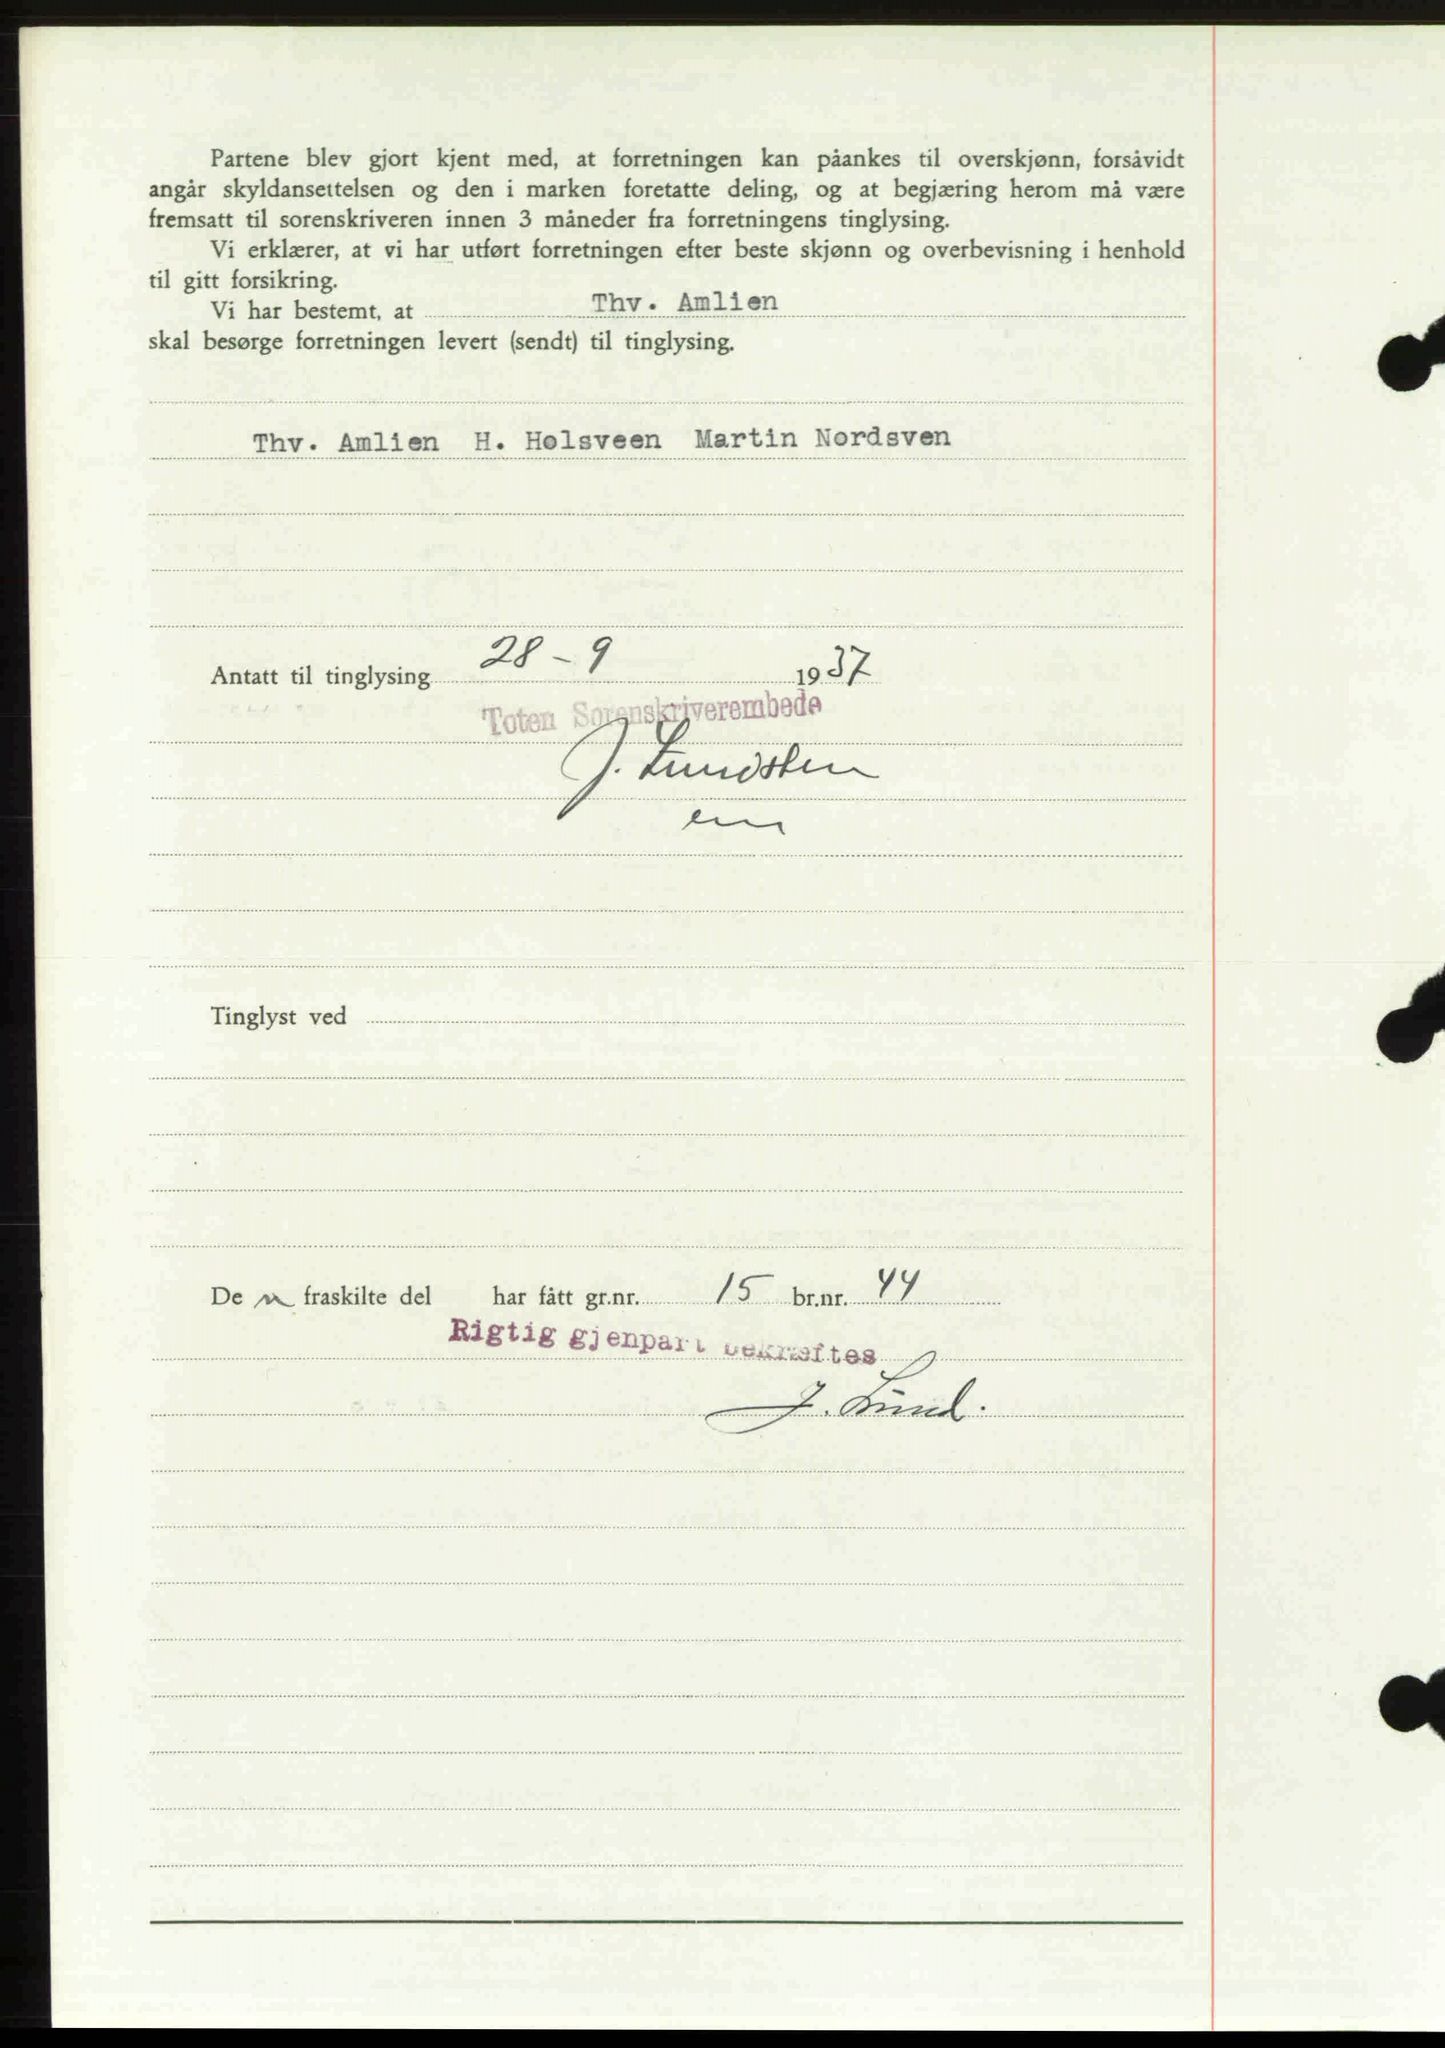 Partene blev gjort kjent med, at forretningen kan påankes til overskjønn, forsåvidt
angår skyldansettelsen og den i marken foretatte deling, og at begjæring herom må være
fremsatt til sorenskriveren innen 3 måneder fra forretningens tinglysing.
Vi erklærer, at vi har utført forretningen efter beste skjønn og overbevisning i henhold
til gitt forsikring.
Vi har bestemt, at Thv. Amlien
skal besørge forretningen levert (sendt) til tinglysing.
Thv. Amlien H. Holsveen Martin Nordsven
Antatt til tinglysing 28-9 1937
Toten Sorenskriverembede
J. Lundsten
Tinglyst ved
De n fraskilte del har fått gr.nr. 15 br.nr. 44
Rigtig gjenpart bekræftes
J. Lund.